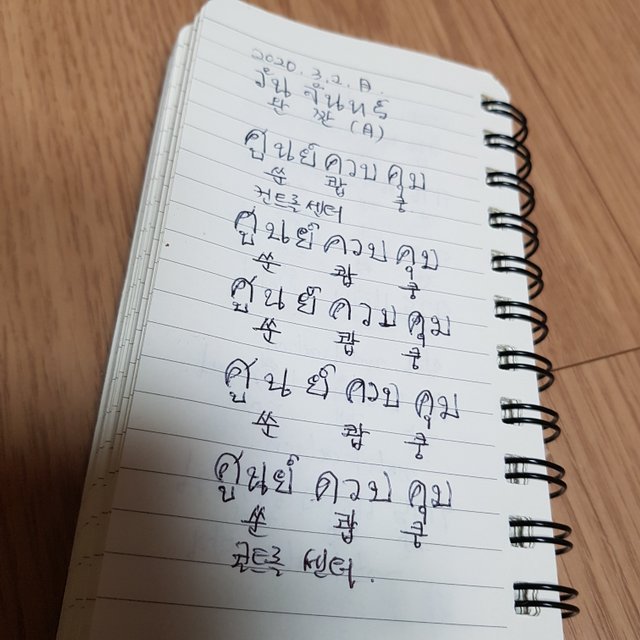 2020. 3. 2. A.
วัน จันทร์
완 짠 (A)
ศูนย์ ควบ คุม
쑨 쾁 쿰
컨트롤 센터
ศูนย์ ควบ คุม
쑨 쾁 쿰
ศูนย์ ควบ คุม
쑨 쾁 쿰
ศูนย์ ควบ คุม
쑨 쾁 쿰
ศูนย์ ควบ คุม
쑨 쾁 쿰
콘트롤 센터.